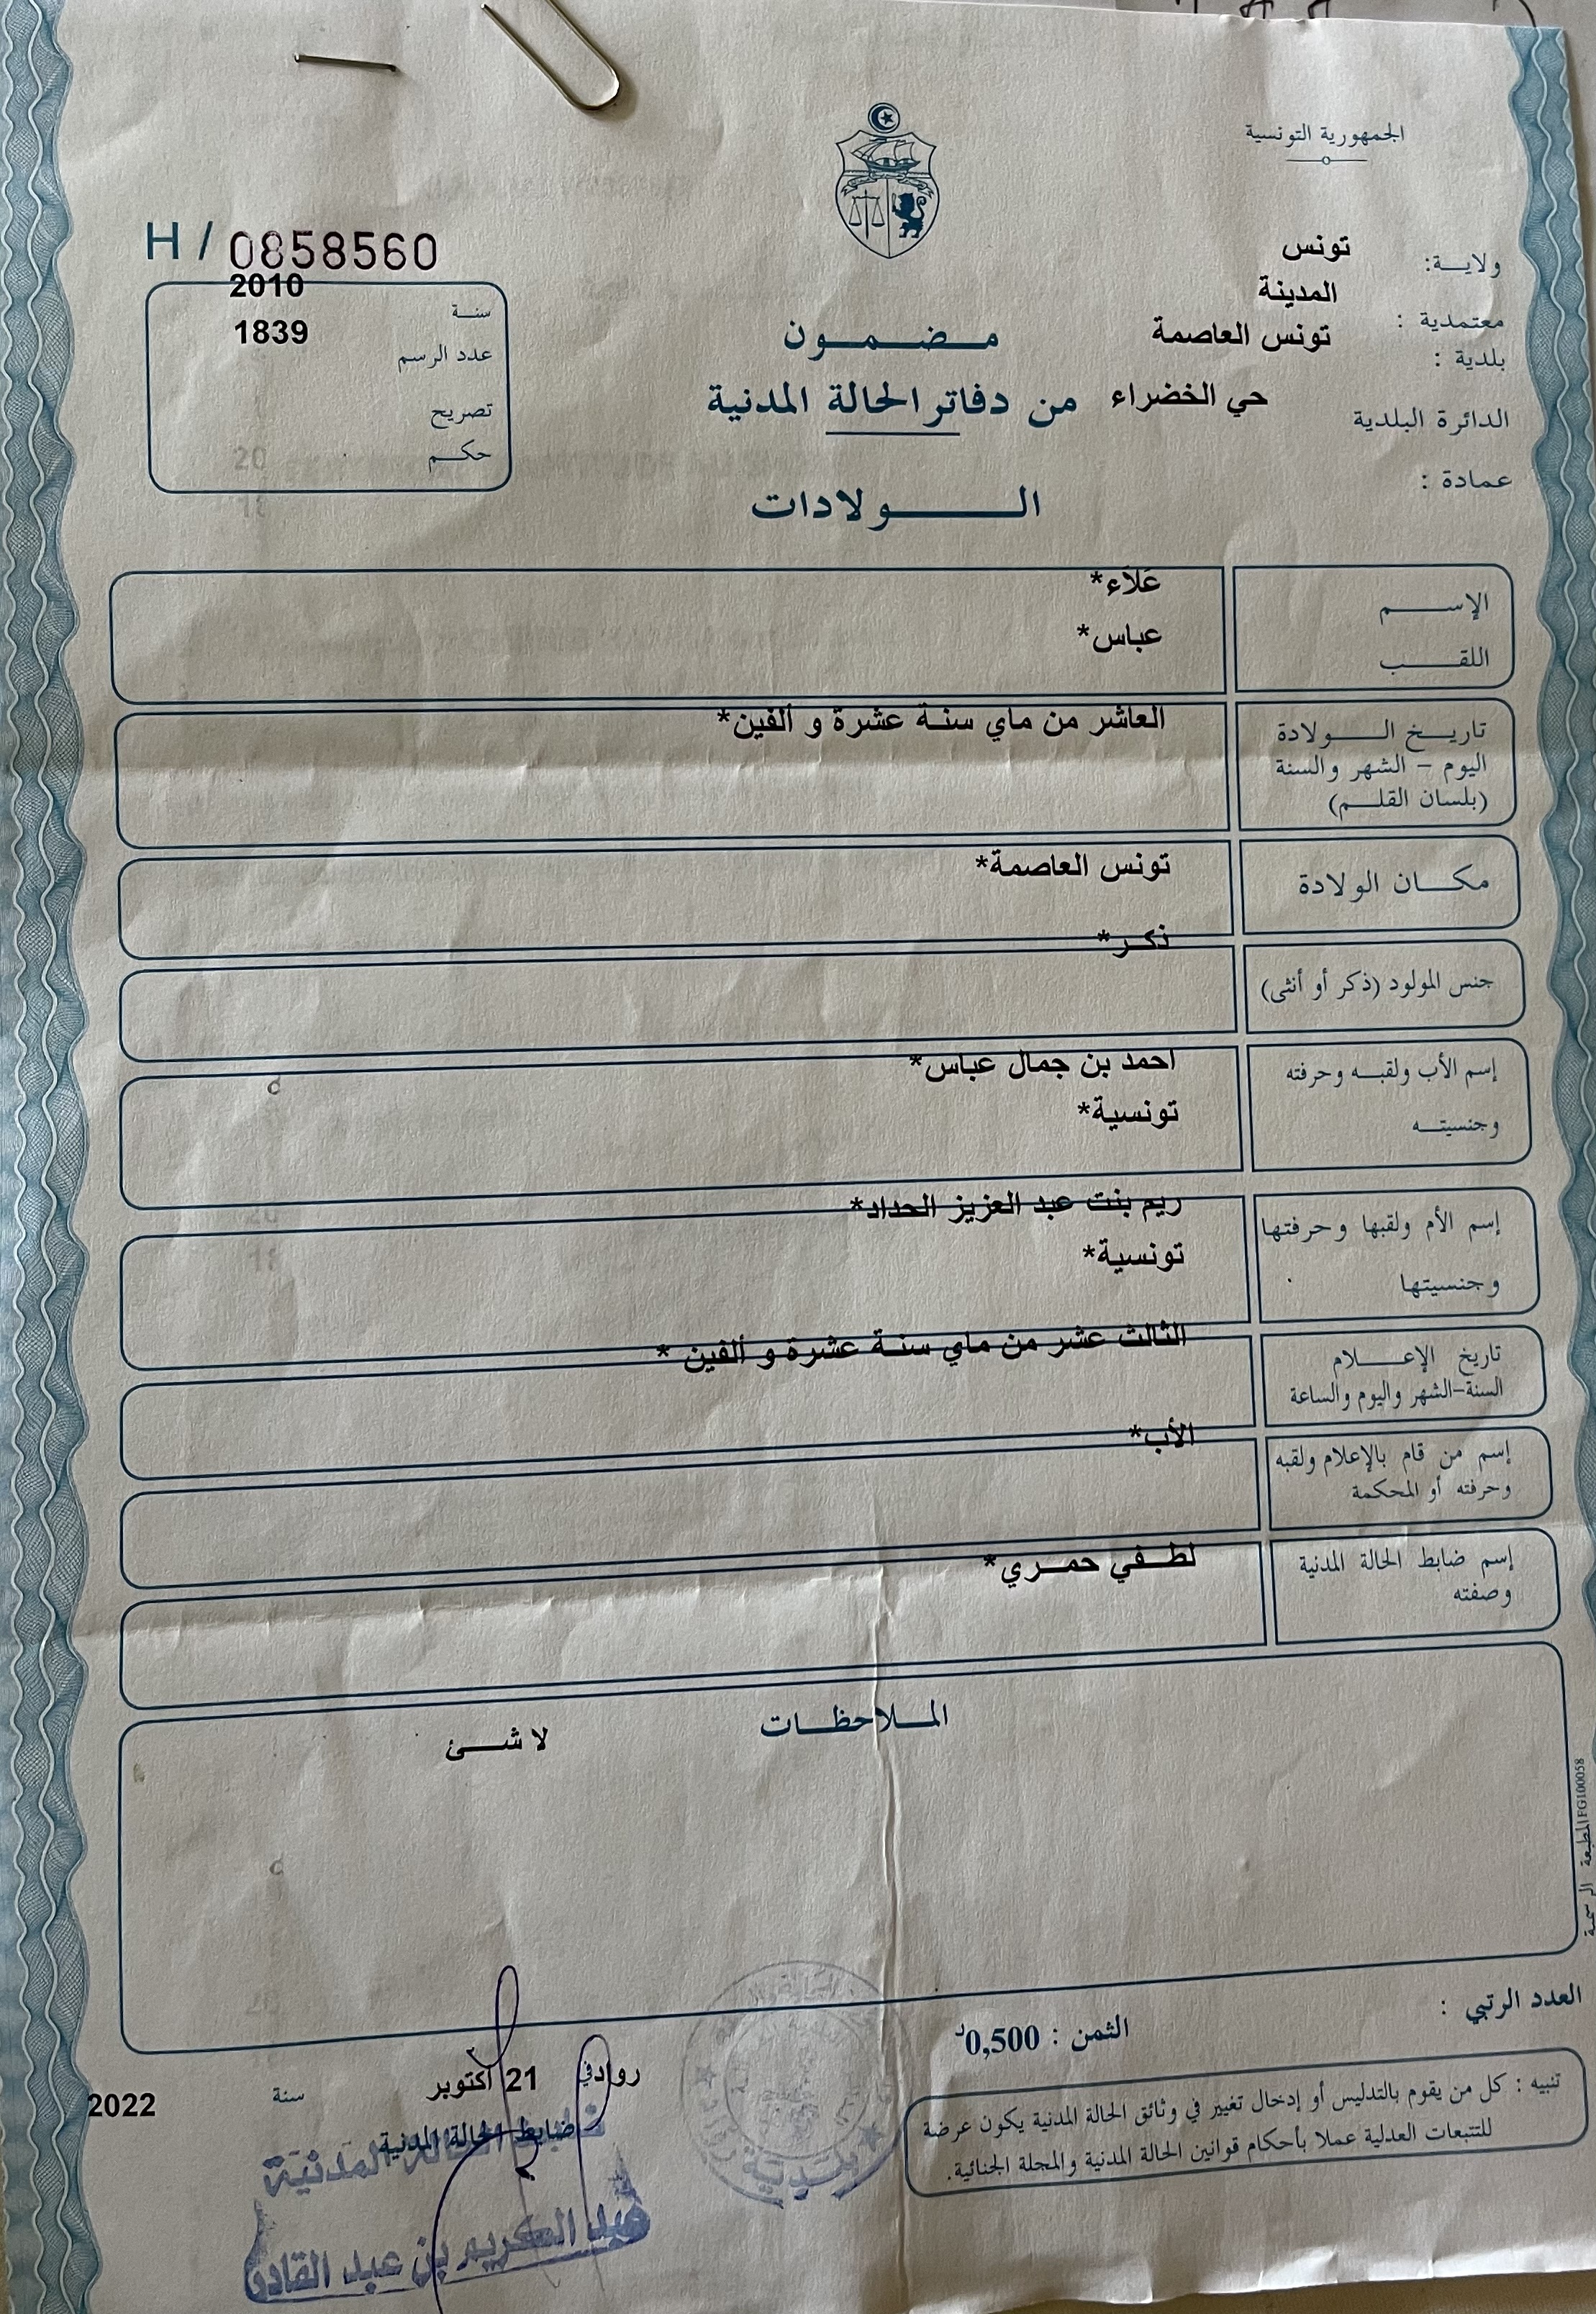 الجمهورية التونسية
ولايــة: تونس
معتمدية : المدينة
بلدية : تونس العاصمة
الدائرة البلدية حي الخضراء
عمادة :
H / 0858560
سنـة 2010
عدد الرسم 1839
تصريح
حكـم
مـضـمـون
من دفاتر الحالة المدنية
الـولادات
الإســـم عَلاَء*
اللقـــب عباس*
تاريـخ الـــولادة العاشر من ماي سنة عشرة و ألفين*
اليوم – الشهر والسنة
(بلسان القلـم)
مكــان الولادة تونس العاصمة*
جنس المولود (ذكر أو أنثى) ذكـر*
إسم الأب ولقبـه وحرفته احمد بن جمال عباس*
وجنسيتـه تونسية*
إسم الأم ولقبها وحرفتها ريم بنت عبد العزيز الحداد*
وجنسيتها تونسية*
تاريخ الإعـــلام الثالث عشر من ماي سنة عشرة و ألفين *
السنة-الشهر واليوم والساعة
إسم من قام بالإعلام ولقبه الأب*
وحرفته أو المحكمة
إسم ضابط الحالة المدنية لطـفي حمـري*
وصفته
المـلاحظـات
لا شـــئ
المطبعة الرسمية FG100058
العدد الرتبي :
الثمن : 0,500د
تنبيه : كل من يقوم بالتدليس أو إدخال تغيير في وثائق الحالة المدنية يكون عرضة
للتتبعات العدلية عملا بأحكام قوانين الحالة المدنية والمجلة الجنائية.
رواد في 21 أكتوبر سنة 2022
ضابط الحالة المدنية
ضابط الحالة المدنية
عبد الكريم بن عبد القادر
بلدية